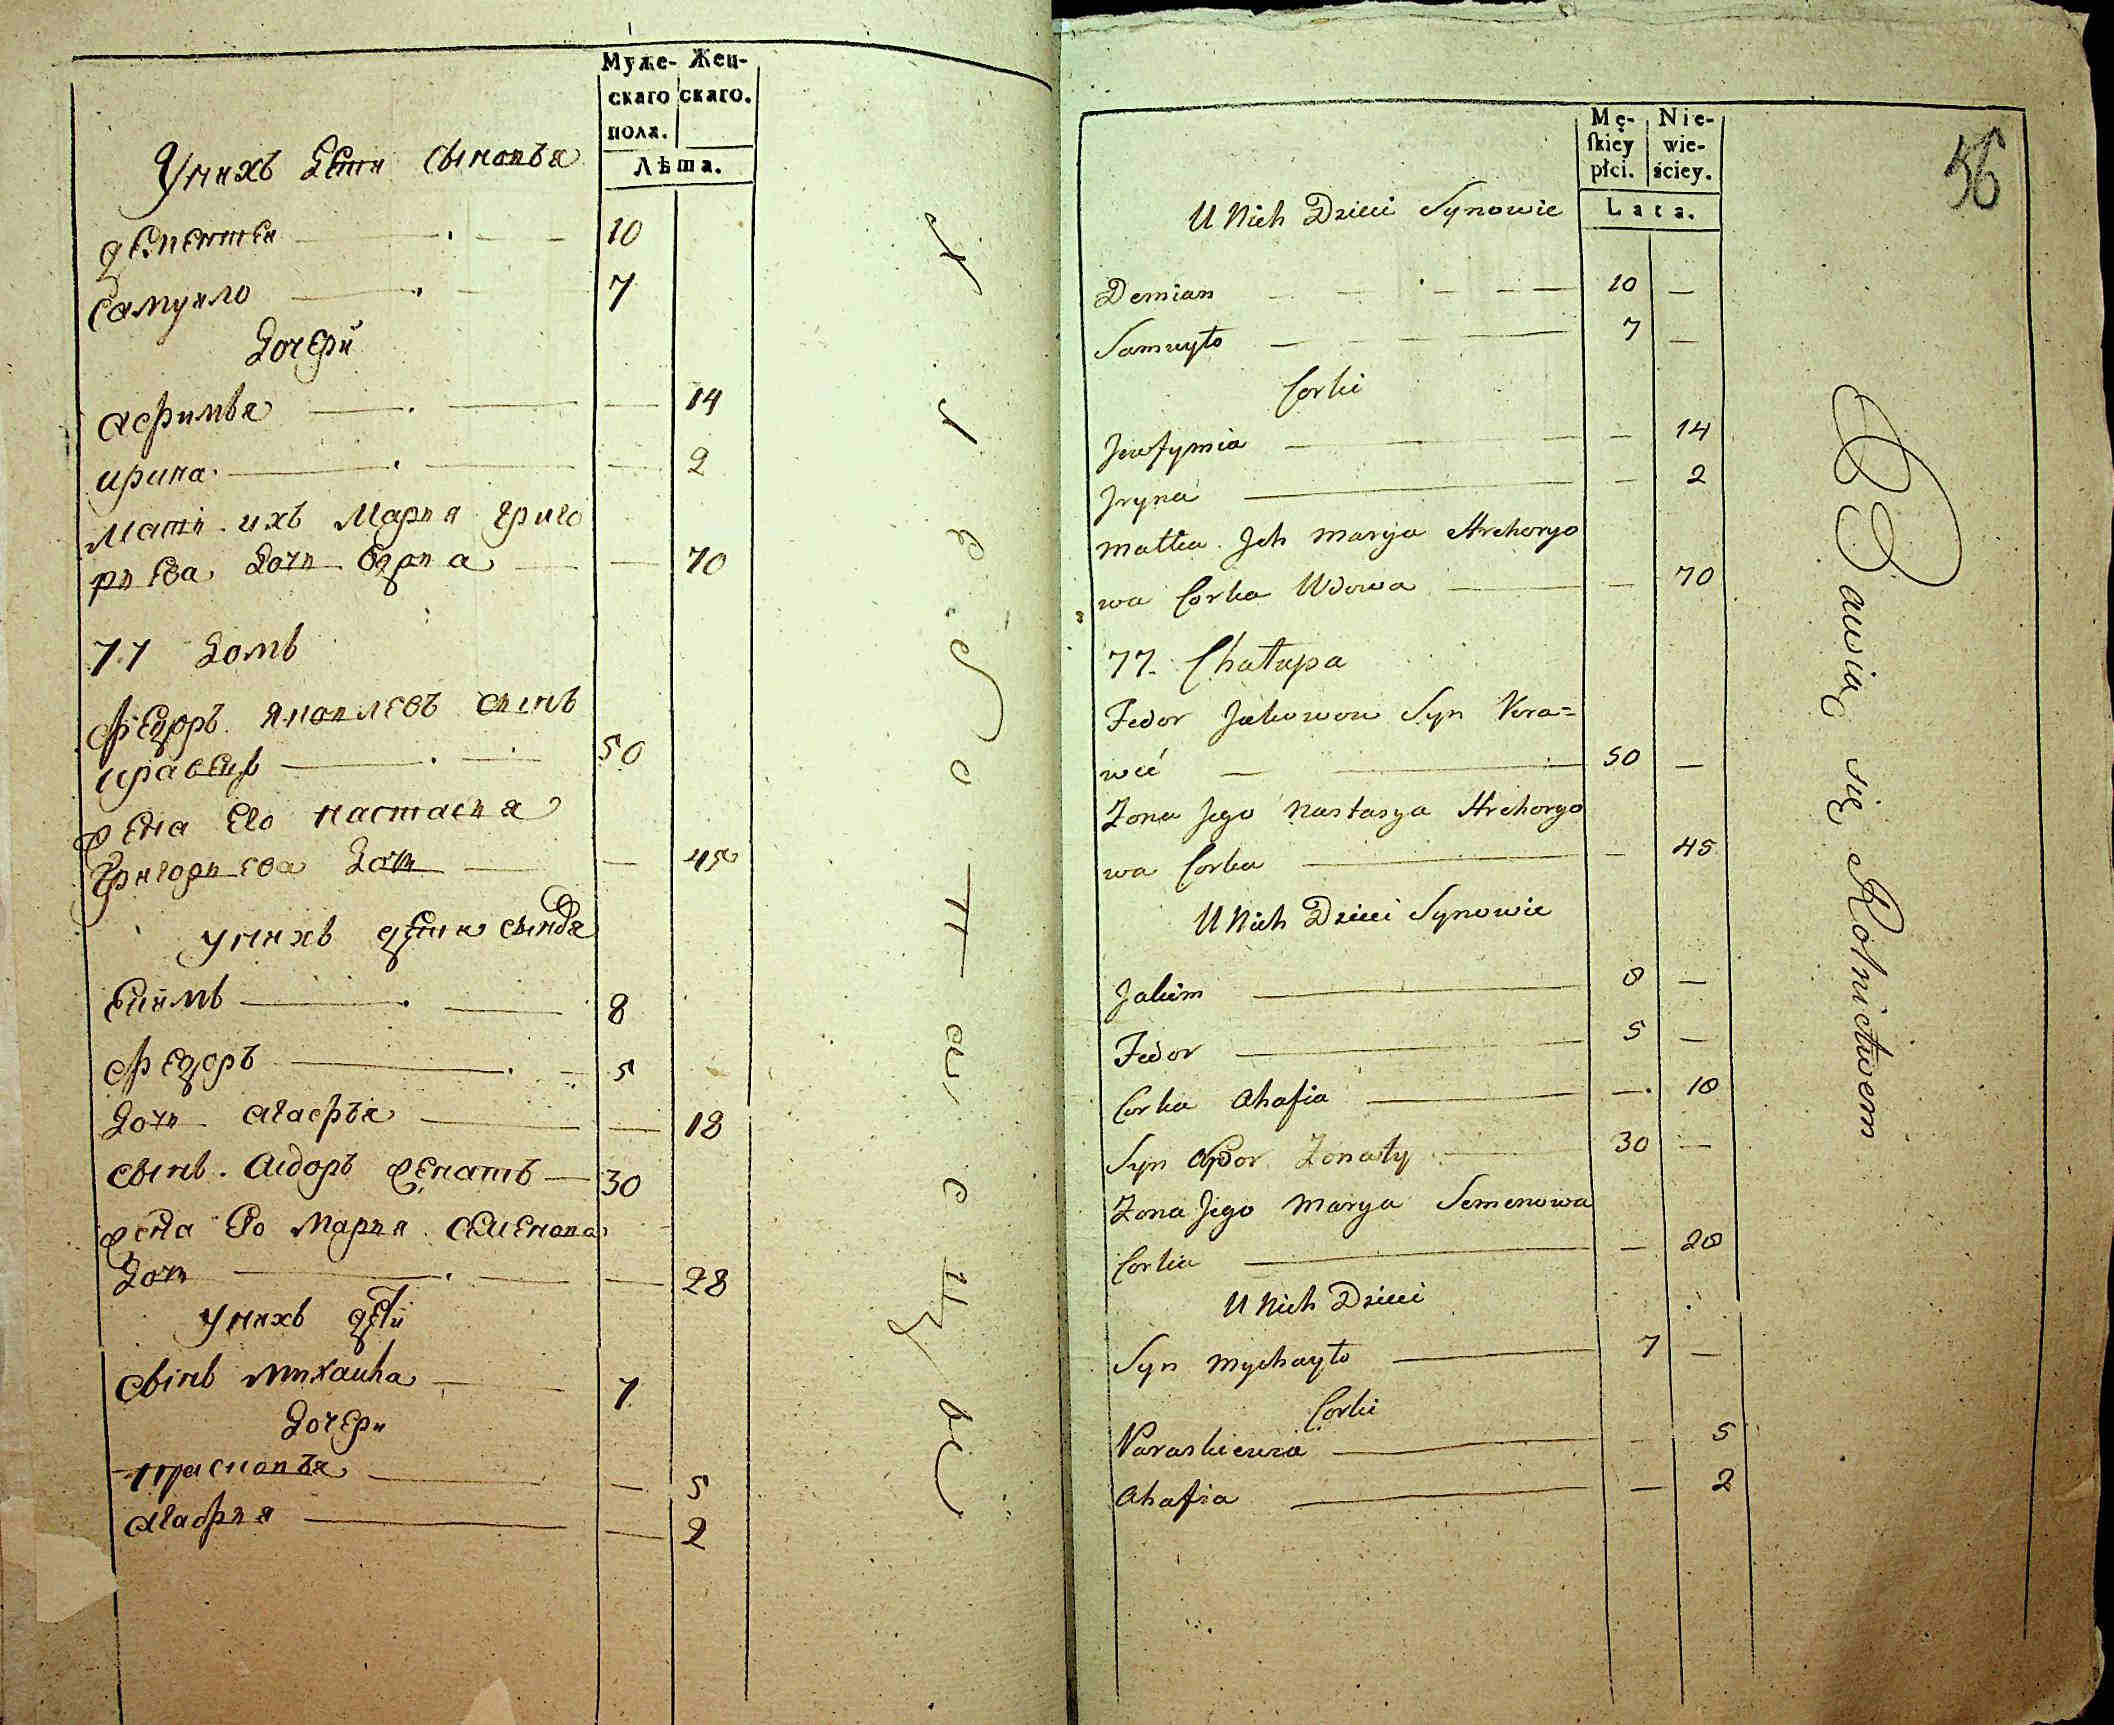 Муже- Жен-
скаго скаго.
пола.
Лѣта.
Унихъ Дети Сыновья
дементеи 10
самуило 7
Дочери
афимья 14
ирина 2
Мати ихъ Мария Григо
риева Дочи вдова 70
77 Домъ
Федоръ Яковлевъ сынъ
кравецъ 50
жена Его настасия
Григориева Дочи 45
унихъ дети сынове
Екимъ 8
Федоръ 5
Дочи агафья 18
сынъ Сидоръ женатъ 30
жена Его Мария Семенова
Дочи 28
унихъ дети
сынъ михаила 7
Дочери
прасковья 5
агафия 2
Mę- Nie-
ſkiey wie-
płci. ściey.
Lata.
56
U Nich Dzieci Synowie
Demian 10 —
Samuyło 7 —
Corki
Jewfymia — 14
Jryna — 2
Matka Jch Marya Hrehoryo
wa Corka Wdowa — 70
77. Chałupa
Fedor Jakowow Syn Kra=
wiec 50 —
Zona Jego Nastasya Hrehoryo
wa Corka — 45
U Nich Dzieci Synowie
Jakim 8 —
Fedor 5 —
Corka Ahafia — 18
Syn Zonaty 30 —
Zona Jego Marya Semenowa
Corka — 28
U Nich Dzieci
Syn Mychayło 7 —
Corki
Paraskiewia — 5
Ahafia — 2
Bawią się Rolnictwem